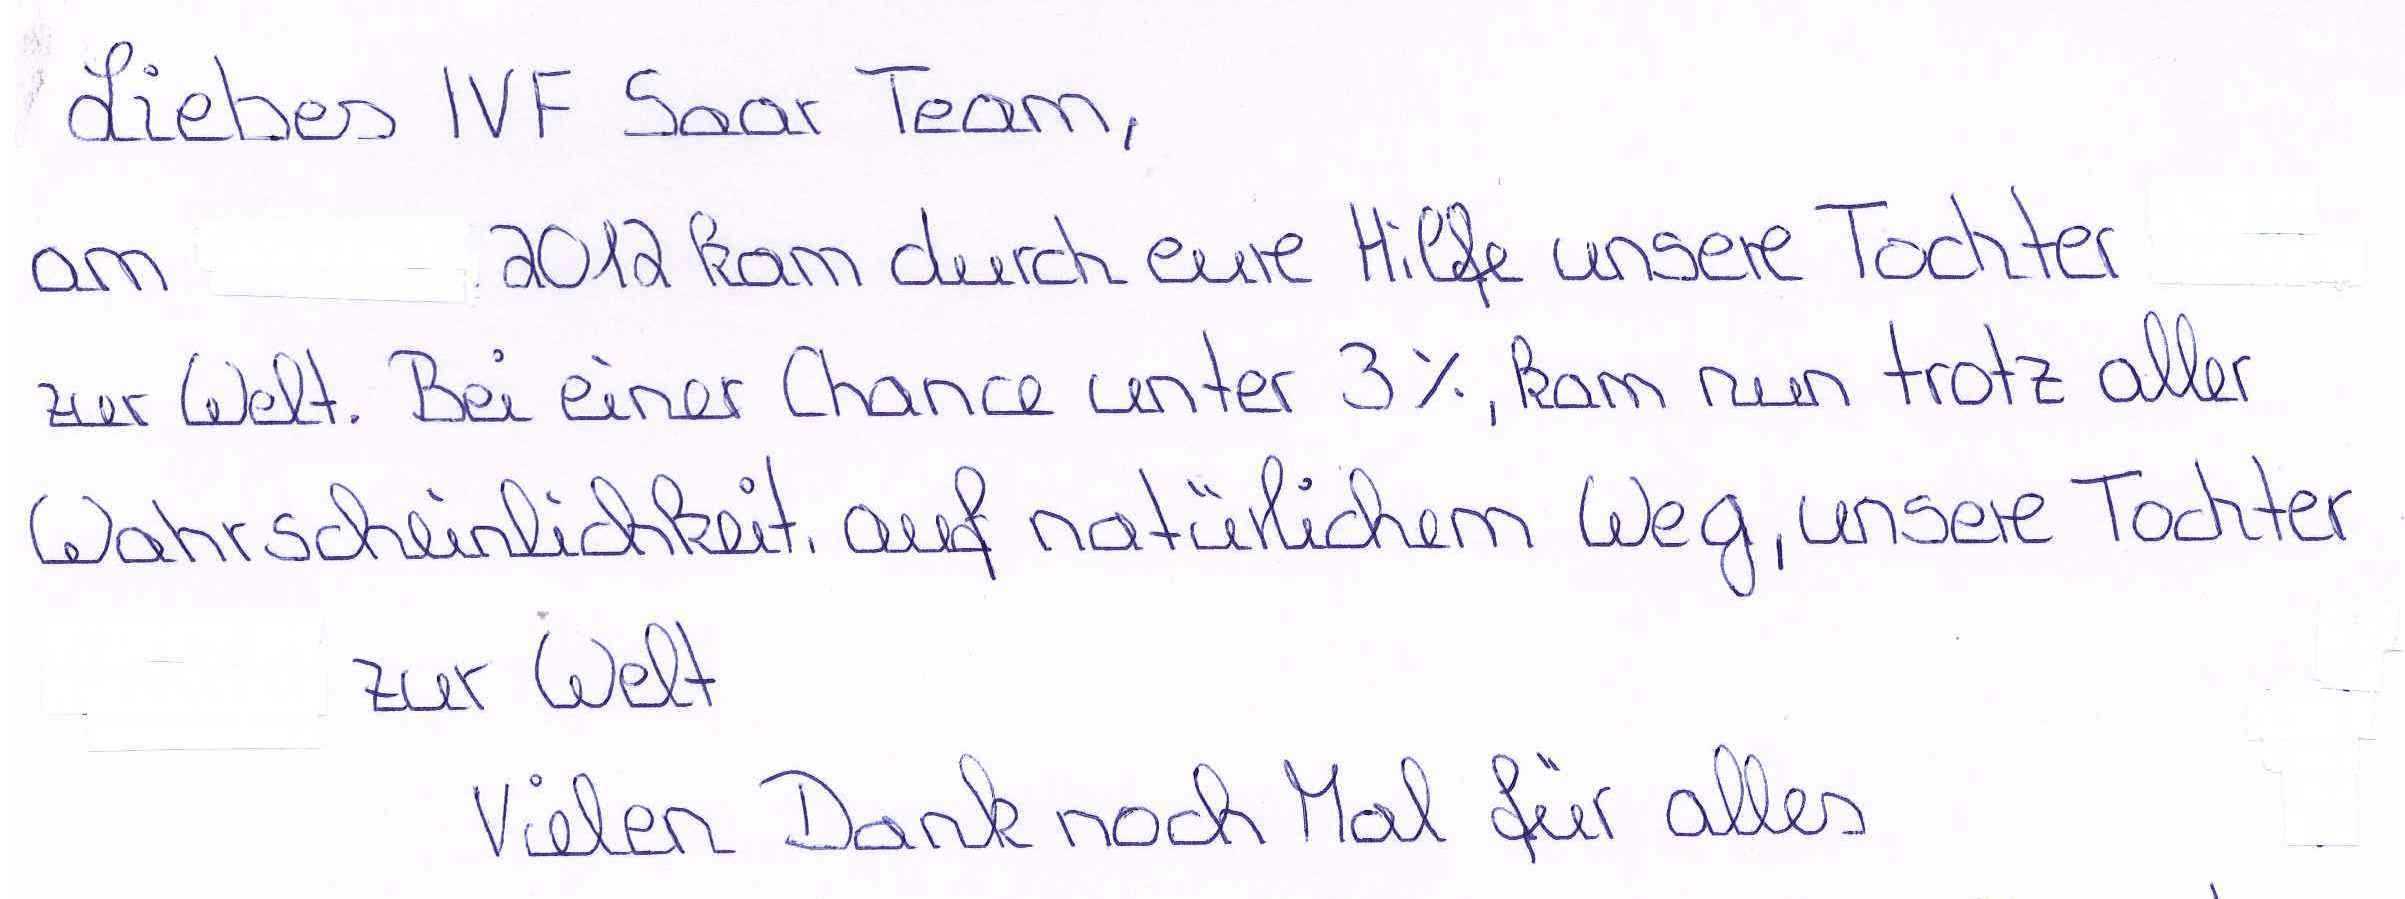 Liebes IVF Saar Team,
am 2012 kam durch eure Hilfe unsere Tochter
zur Welt. Bei einer Chance unter 3%, kam nun trotz aller
Wahrscheinlichkeit. auf natürlichem Weg, unsere Tochter
zur Welt
Vielen Dank noch Mal für alles